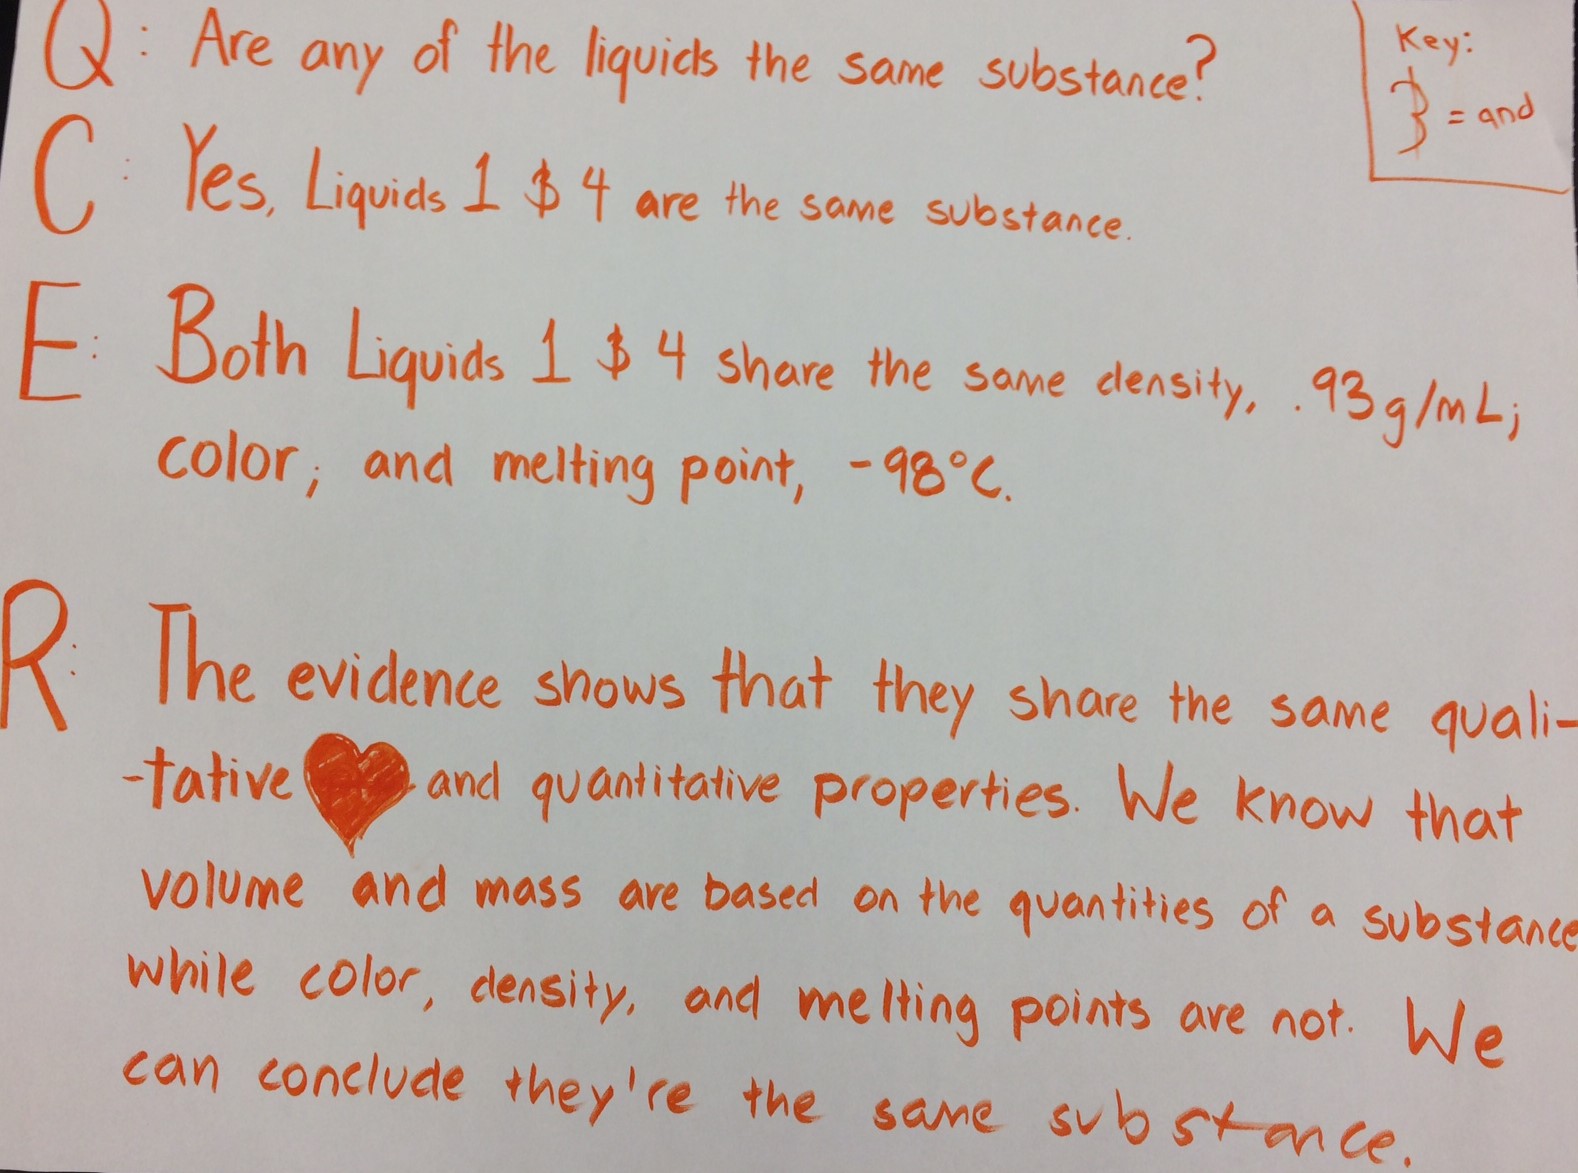 Q: Are any of the liquids the same substance?
Key:
} = and
C: Yes, Liquids 1 & 4 are the same substance.
E: Both Liquids 1 & 4 share the same density, .93g/mL;
color; and melting point, -98°C.
R: The evidence shows that they share the same quali-
-tative and quantitative properties. We know that
volume and mass are based on the quantities of a substance
while color, density, and melting points are not. We
can conclude they're the same substance.